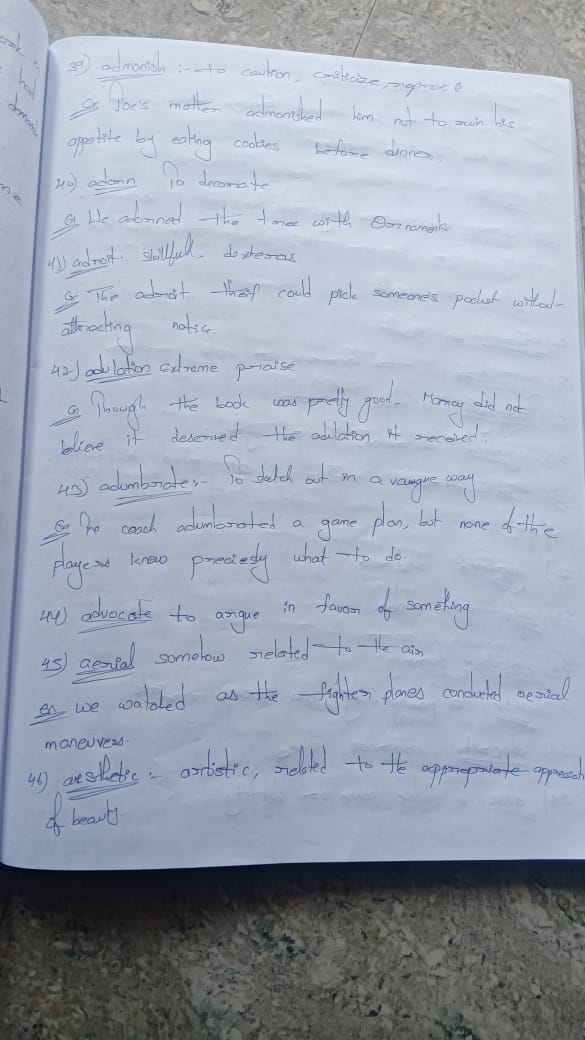 39) admonish :- to caution, criticize, reprove
Ex Joe's mother admonished him not to ruin his
appetite by eating cookies before dinner.
40) adorn To decorate
Ex He adorned the tree with Ornaments
41) adroit. skillfull. dexteras
Ex The adroit theif could pick someone's pocket without
attracting notice.
42) adulation extreme praise
Ex Though the book was pretty good. Marcy did not
blieve it deserved the adulation it received.
43) adumbrate:- To sketch out in a vangue way
Ex The coach adumbrated a game plan, but none of the
players knew preciesly what to do.
44) advocate to argue in favor of something
45) aerial somehow related to the air
Ex we watched as the fighter planes conducted aerial
maneuvers.
46) aesthetic :- artistic, related to the appropriate appreach
of beauty.